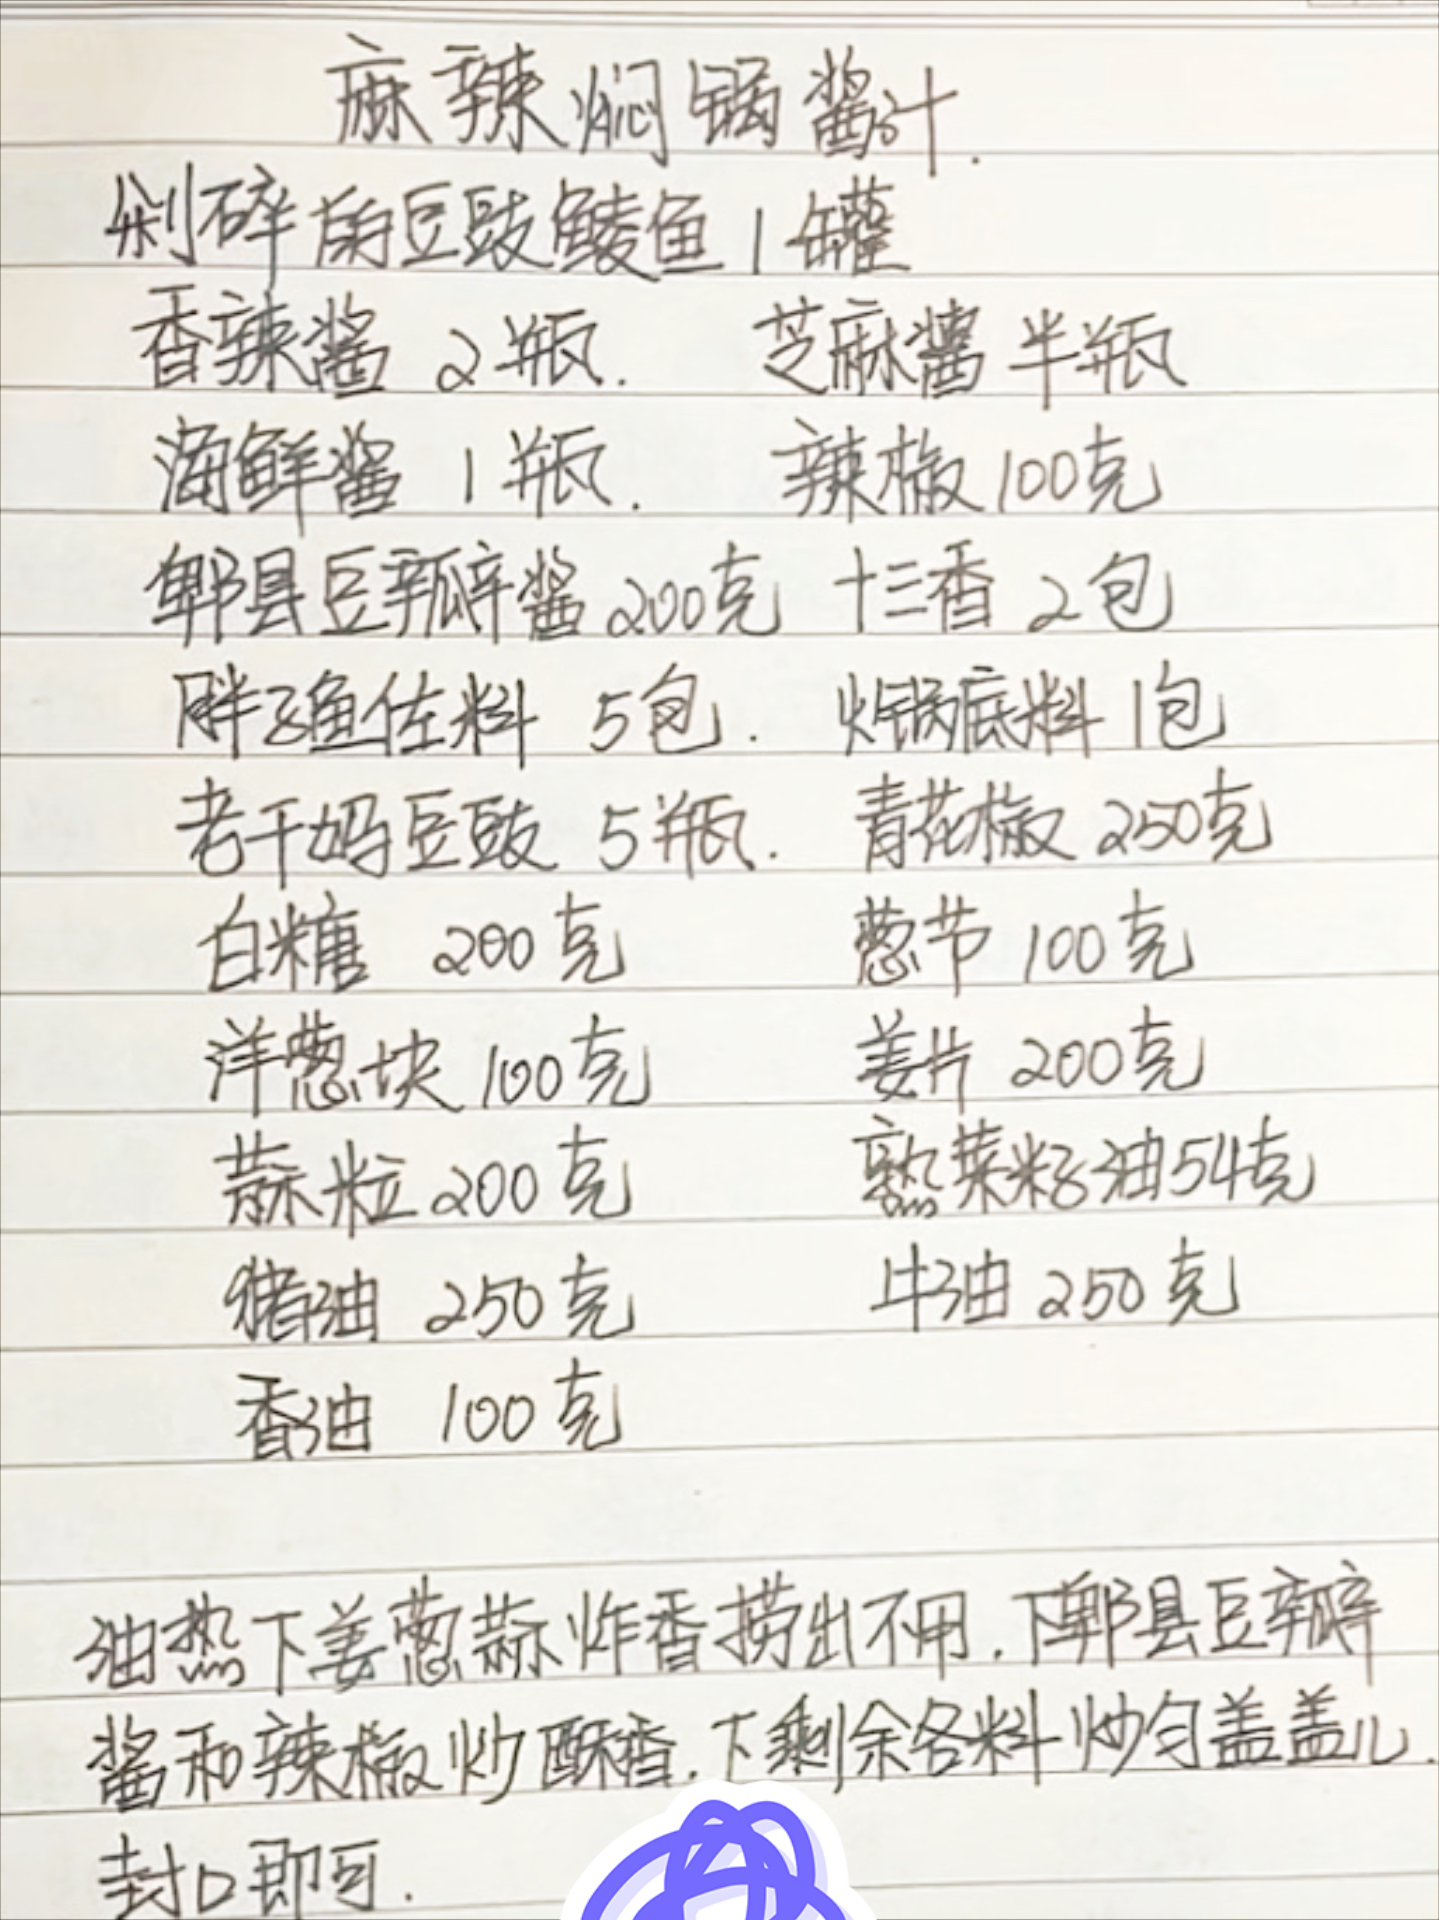 麻辣焖锅酱汁.
剁碎的豆豉鲮鱼1罐
香辣酱 2瓶. 芝麻酱半瓶
海鲜酱 1瓶. 辣椒100克
郫县豆瓣酱200克 十三香 2包
胖子鱼佐料 5包. 火锅底料1包
老干妈豆豉 5瓶. 青花椒250克
白糖 200克 葱节100克
洋葱块100克 姜片200克
蒜粒200克 熟菜籽油54克
猪油 250克 牛油250克
香油 100克
油热下姜葱蒜炸香捞出不用.下郫县豆瓣
酱和辣椒炒酥香.下剩余各料炒匀盖盖儿.
封口即可.